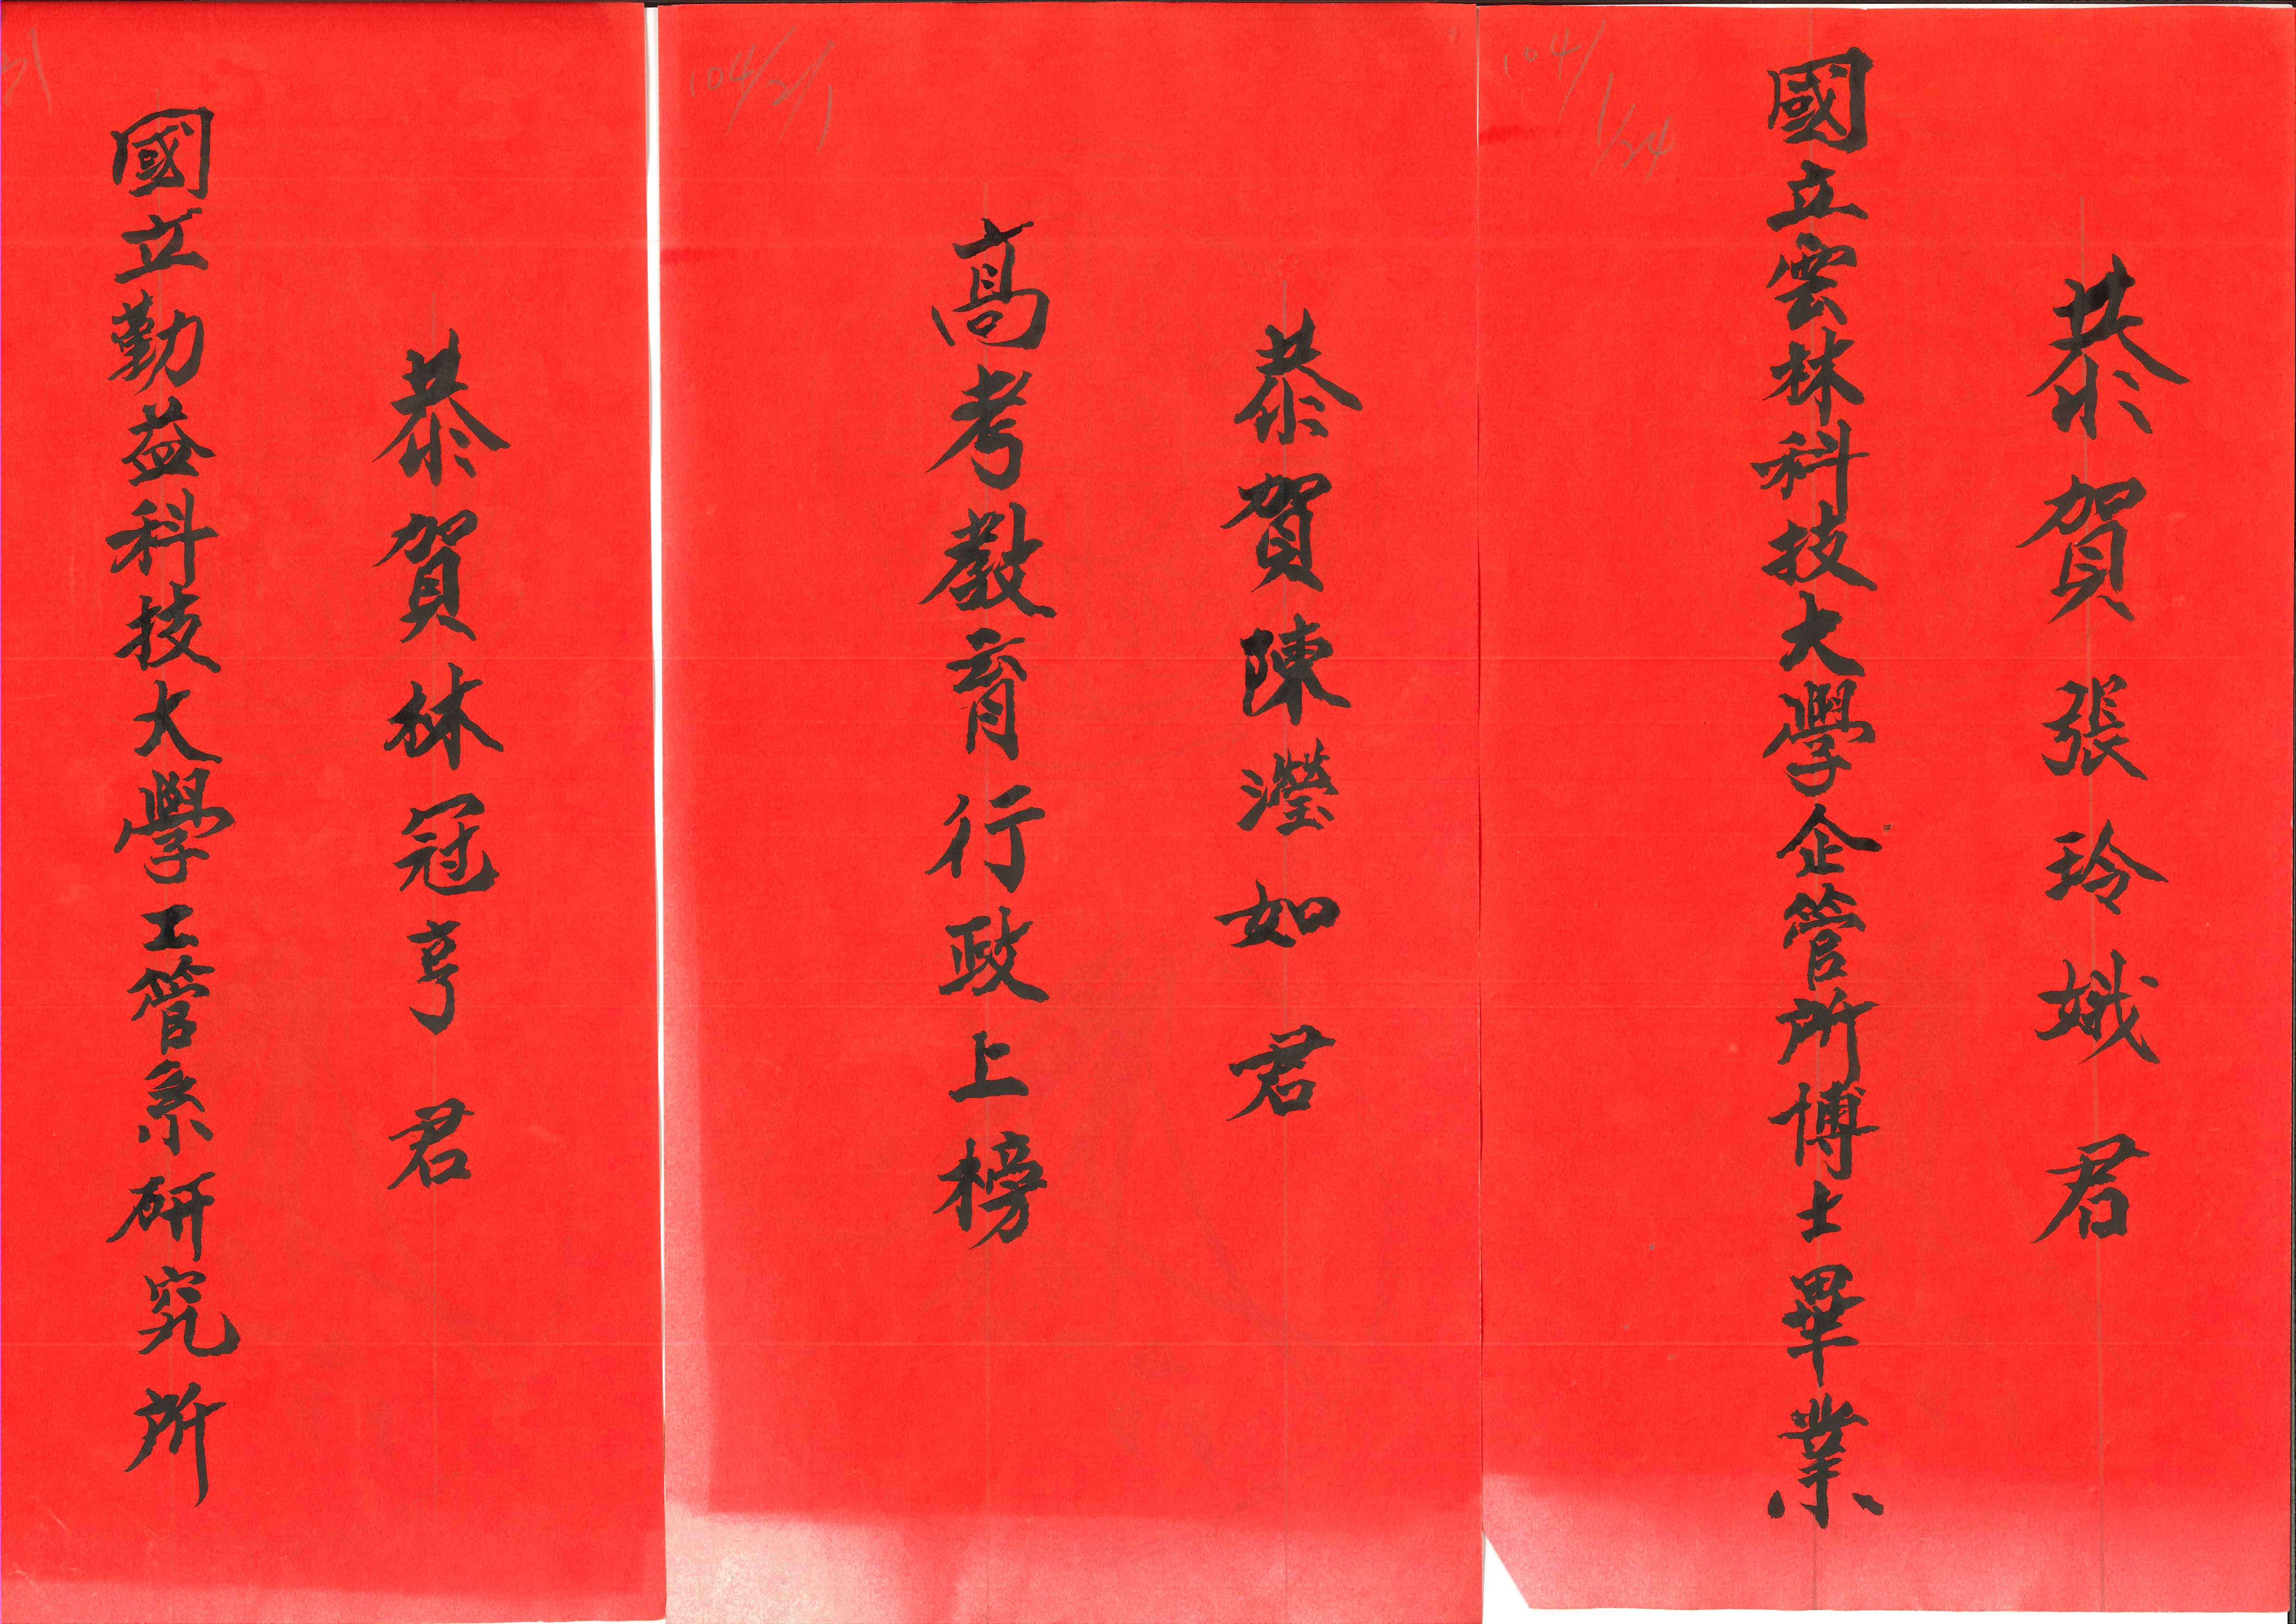 104/1/24
恭賀張玲娥君
國立雲林科技大學企管所博士畢業
104/2/1
恭賀陳瀅如君
高考教育行政上榜
恭賀林冠亨君
國立勤益科技大學工管系研究所